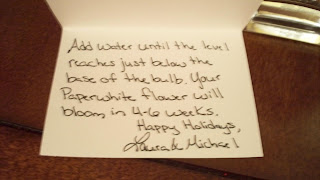 Add water until the level
reaches just below the
base of the bulb. Your
Paperwhite flower will
bloom in 4-6 weeks.
Happy Holidays,
Laura & Michael